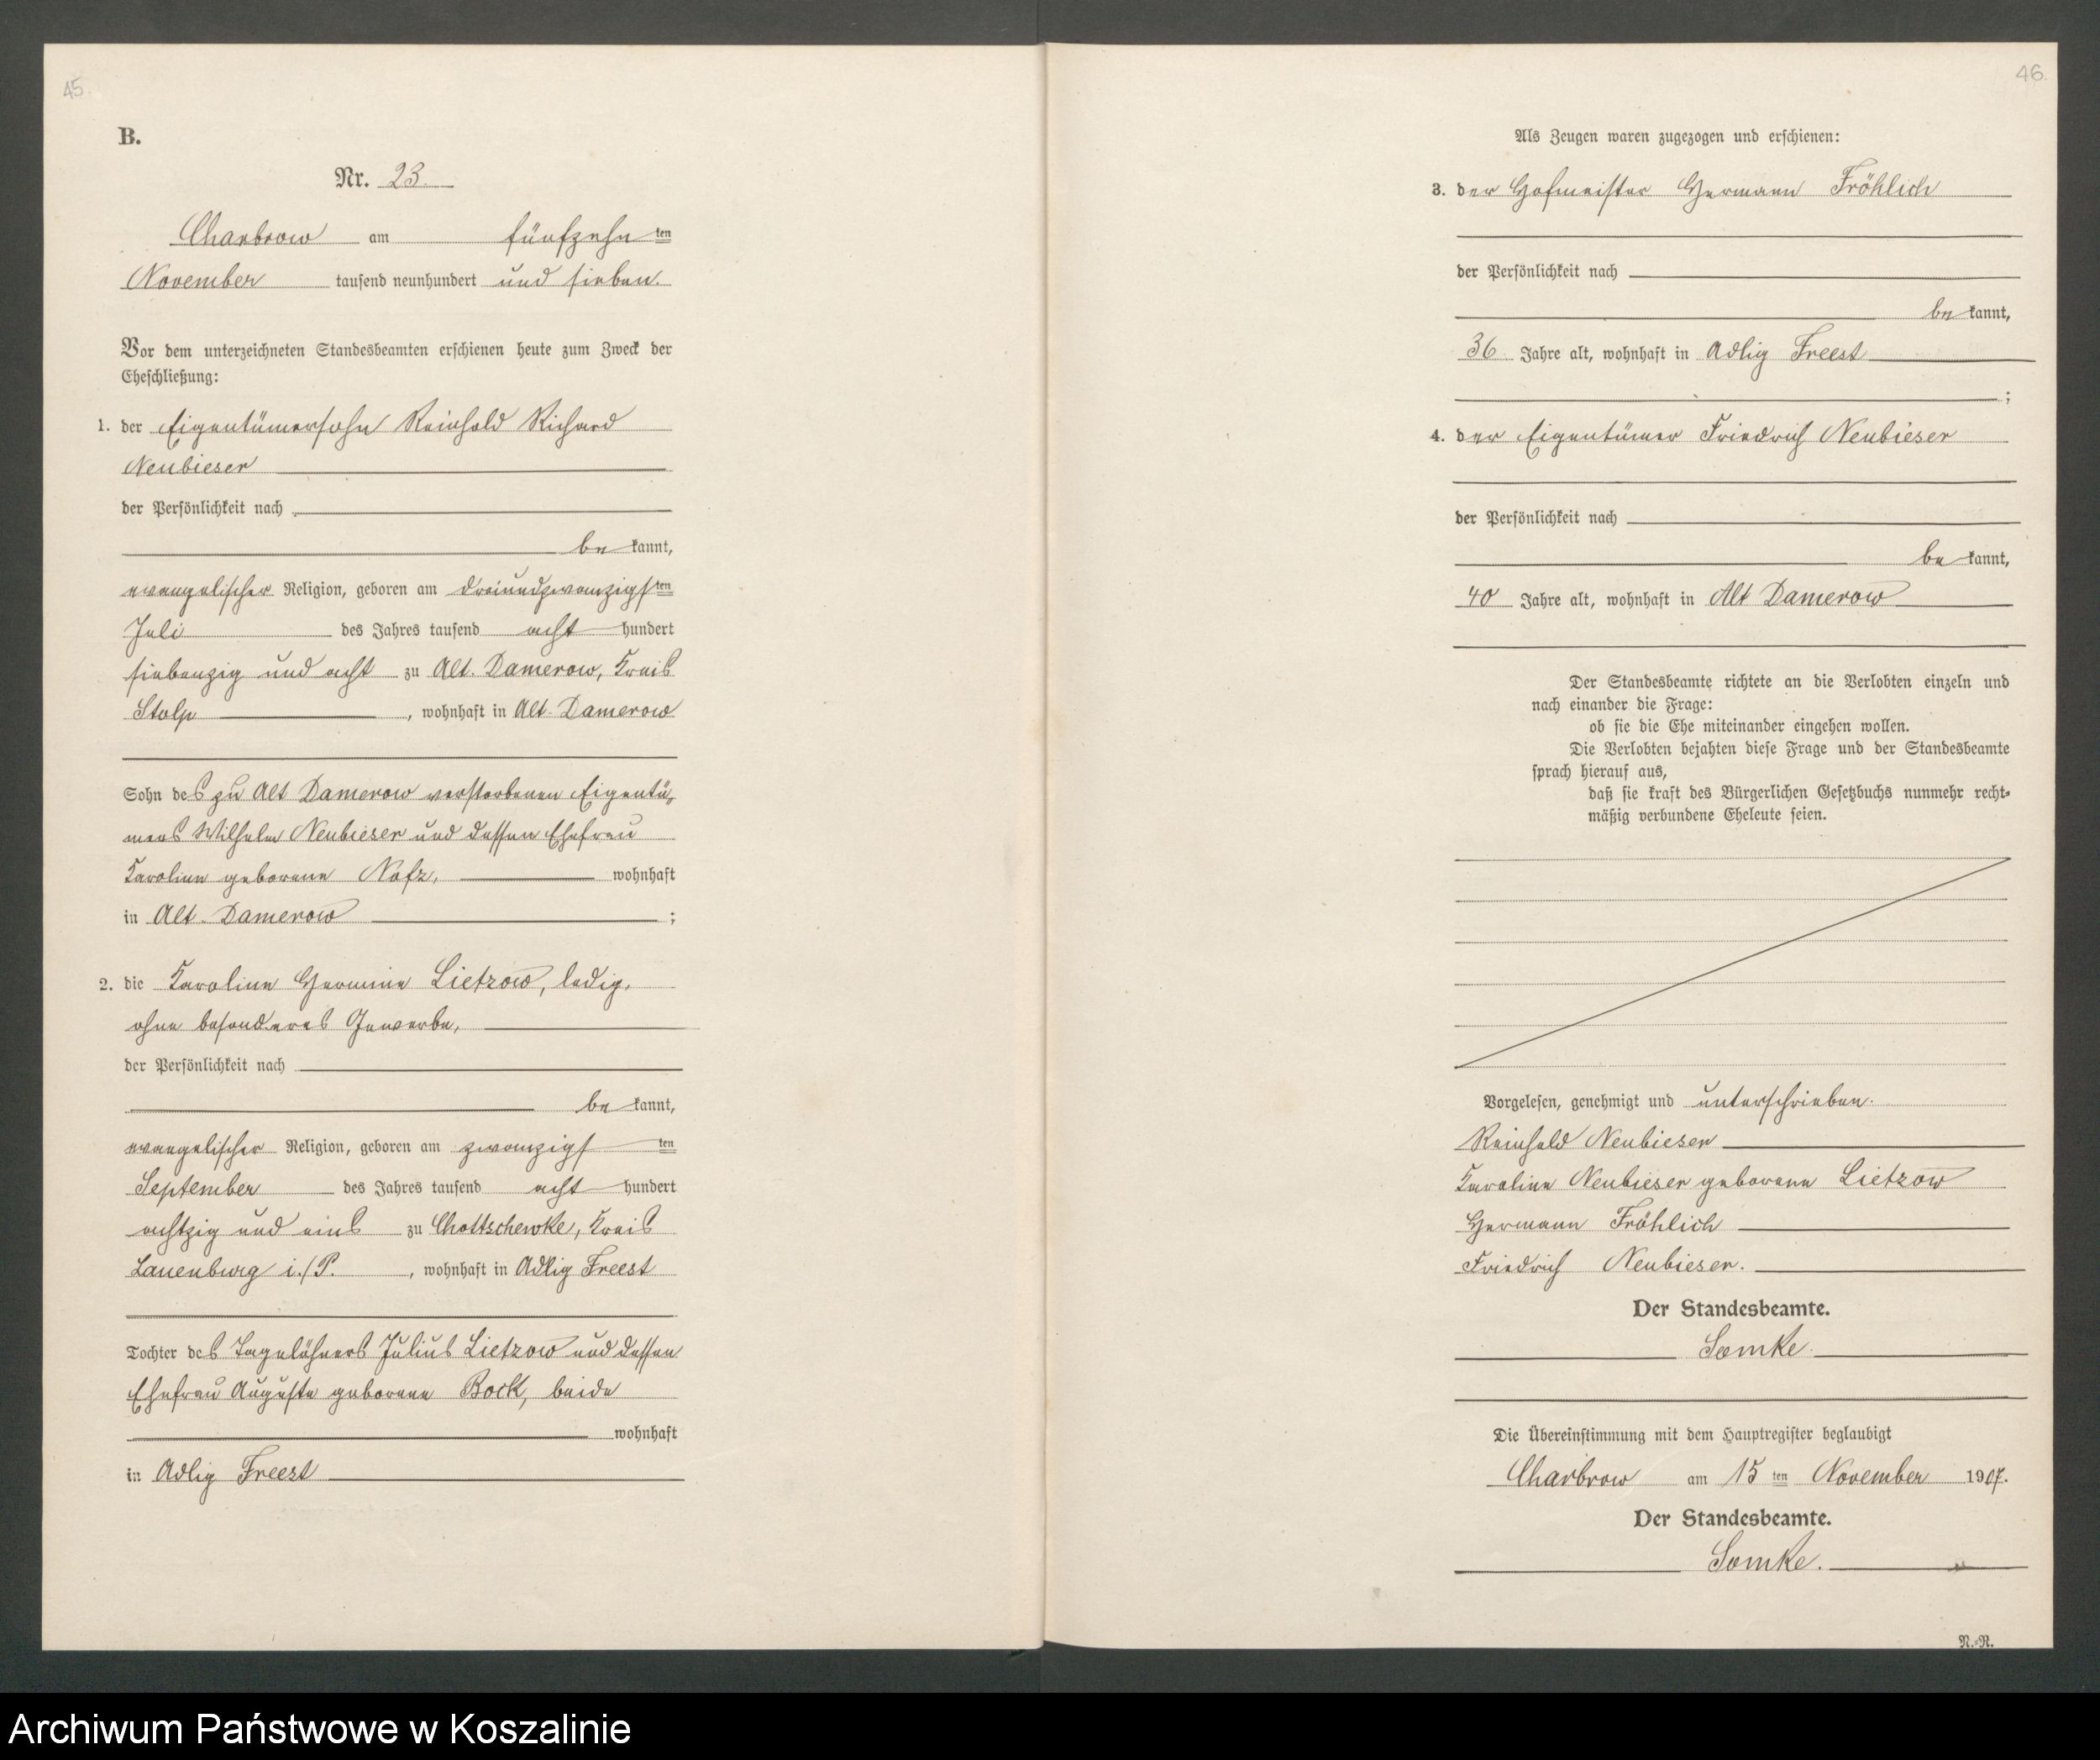 45.
B.
Nr. 23.
Charbrow am fünfzehn ten
November tausend neunhundert und sieben.
Vor dem unterzeichneten Standesbeamten erschienen heute zum Zweck der
Eheschließung:
1. der Eigentümersohn Reinhold Richard
Neubieser
der Persönlichkeit nach
be kannt,
evangelischer Religion, geboren am dreiundzwanzigsten
Juli des Jahres tausend acht hundert
siebenzig und acht zu Alt. Damerow, Kreis
Stolp, wohnhaft in Alt-Damerow
Sohn des zu Alt Damerow verstorbenen Eigentü-
mers Wilhelm Neubieser und dessen Ehefrau
Karoline geborene Nofz, wohnhaft
in Alt-Damerow ;
2. die Karoline Hermine Lietzow, ledig,
ohne besonderes Gewerbe,
der Persönlichkeit nach
be kannt,
evangelischer Religion, geboren am zwanzigsten
September des Jahres tausend acht hundert
achtzig und eins zu Chottschewke, Kreis
Lauenburg i./P., wohnhaft in Adlig Freest
Tochter des Tagelöhners Julius Lietzow und dessen
Ehefrau Auguste geborene Bock, beide
wohnhaft
in Adlig Freest
46.
Als Zeugen waren zugezogen und erschienen:
3. der Hofmeister Hermann Fröhlich
der Persönlichkeit nach
be kannt,
36 Jahre alt, wohnhaft in Adlig Freest
;
4. der Eigentümer Friedrich Neubieser
der Persönlichkeit nach
be kannt,
40 Jahre alt, wohnhaft in Alt Damerow
Der Standesbeamte richtete an die Verlobten einzeln und
nach einander die Frage:
ob sie die Ehe miteinander eingehen wollen.
Die Verlobten bejahten diese Frage und der Standesbeamte
sprach hierauf aus,
daß sie kraft des Bürgerlichen Gesetzbuchs nunmehr recht-
mäßig verbundene Eheleute seien.
Vorgelesen, genehmigt und unterschrieben.
Reinhold Neubieser
Karoline Neubieser geborene Lietzow
Hermann Fröhlich
Friedrich Neubieser.
Der Standesbeamte.
Semke.
Die Übereinstimmung mit dem Hauptregister beglaubigt
Charbrow am 15ten November 1907.
Der Standesbeamte.
Semke.
N.-R.
Archiwum Państwowe w Koszalinie